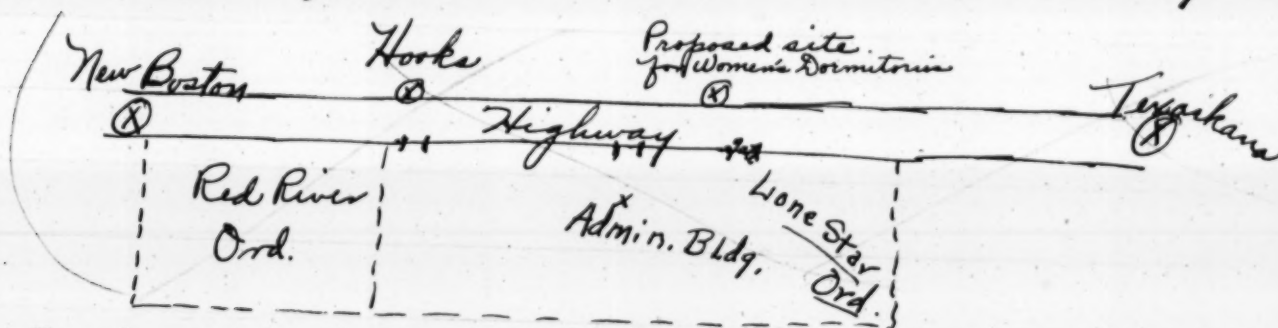 New Boston
Hooks
Proposed site
for Women's Dormitories
Texarkana
Highway
Red River
Ord.
Admin. Bldg.
Lone Star
Ord.